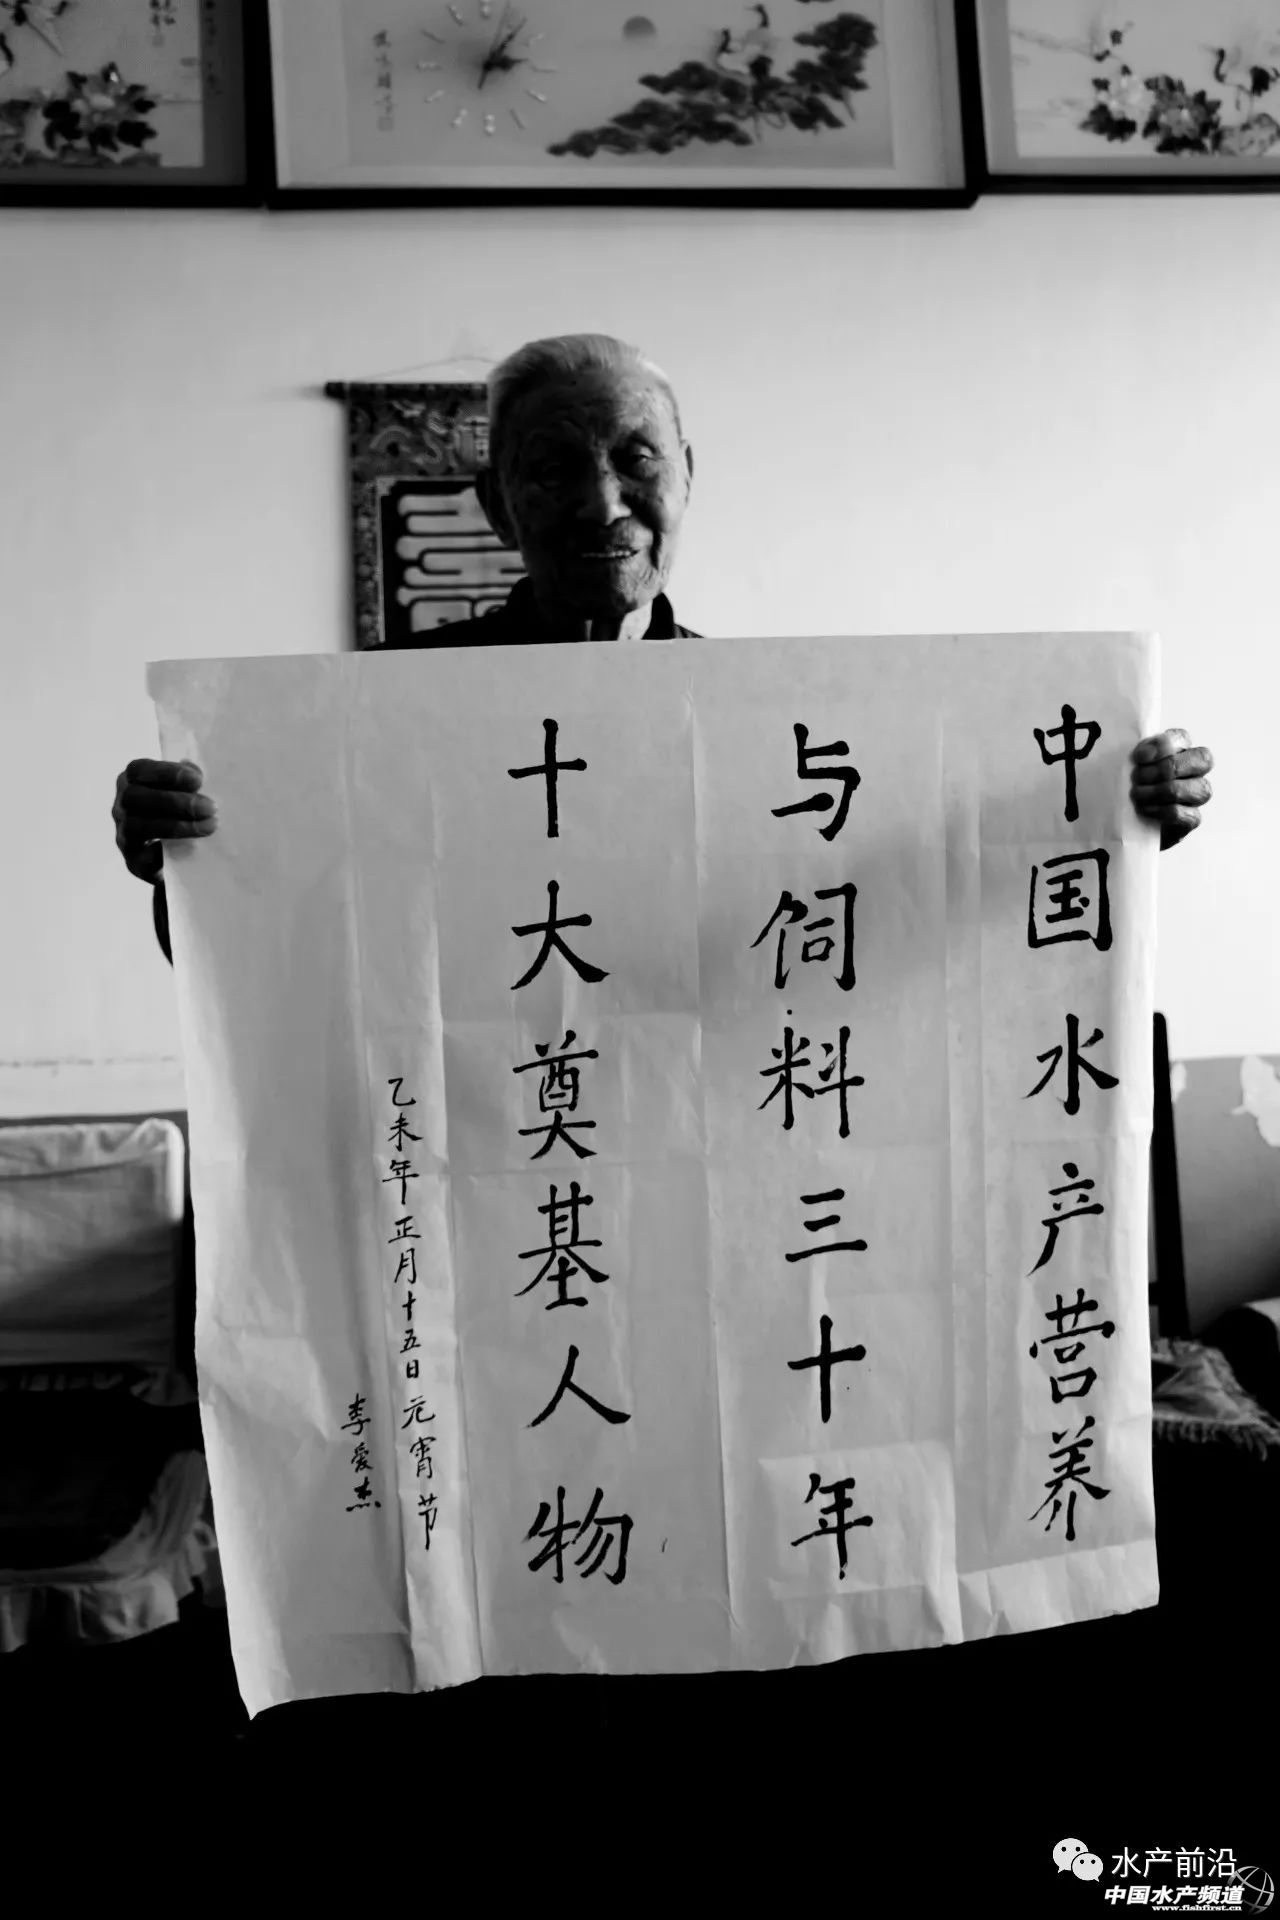 中国水产营养
与饲料三十年
十大奠基人物
乙未年正月十五日元宵节
李爱杰
水产前沿
中国水产频道
www.fishfirst.cn